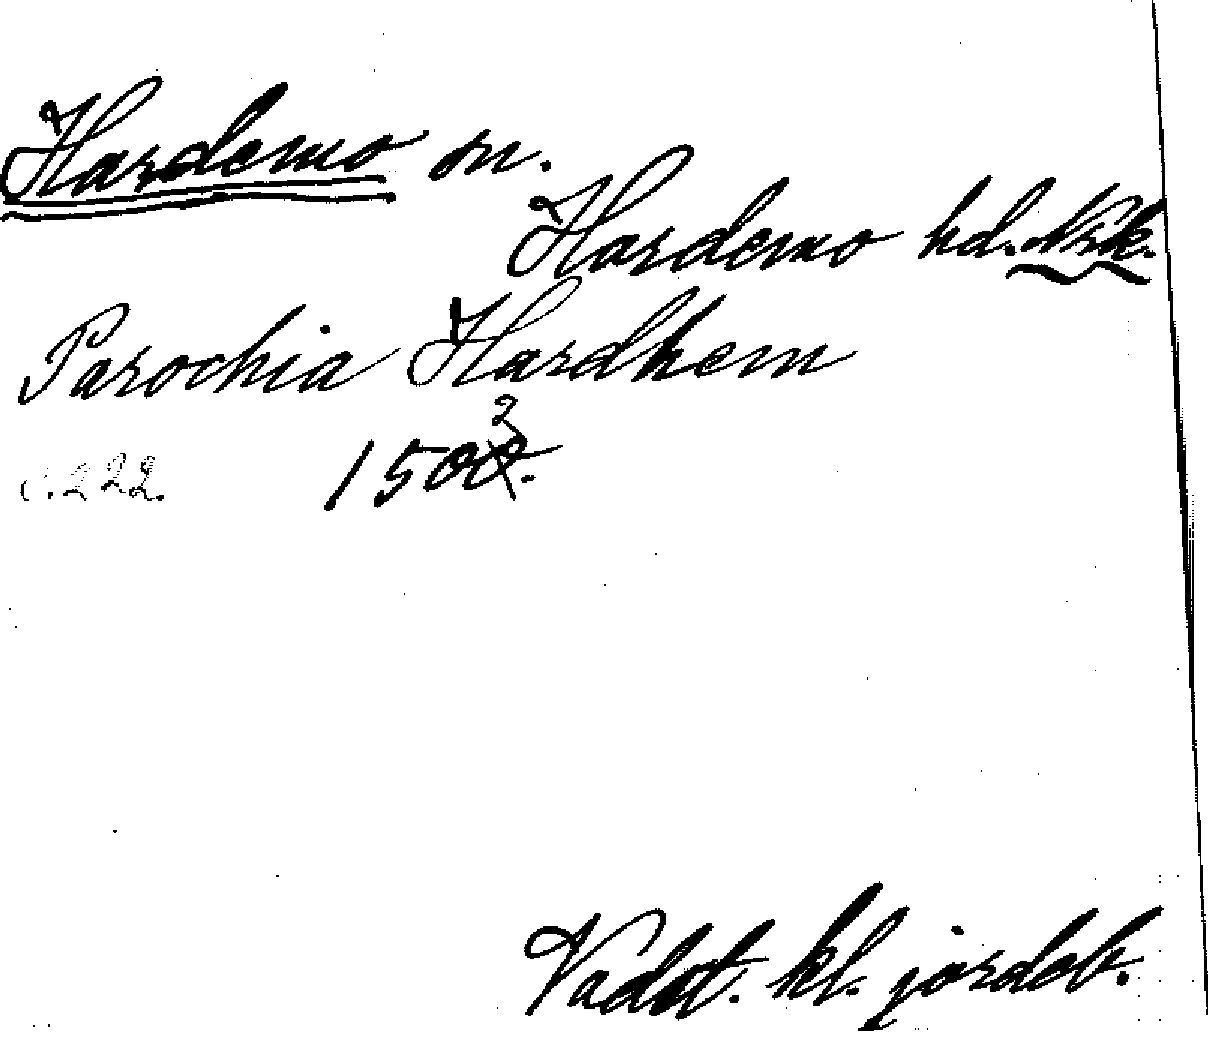 Hardemo sn.
Hardemo hd. Nrk.
Parochia Hardhem
1502.
c. 222.
Vadst. kl. jordeb.